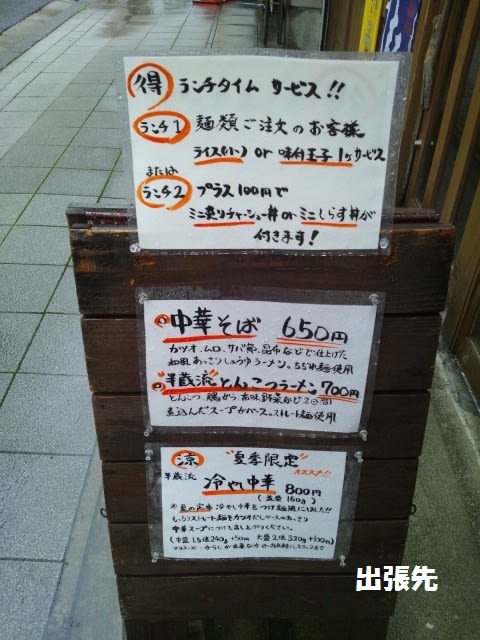 得 ランチタイム サービス!!
ランチ1 麺類ご注文のお客様
ライス(小) or 味付玉子1ケサービス
または
ランチ2 プラス100円で
ミニ炙りチャーシュー丼 or ミニしらす丼が
付きます!
① 中華そば 650円
カツオ、ムロ、サバ節、昆布などで仕上げた
和風あっさりしょうゆラーメン。ちぢれ麺使用
② 半蔵流 とんこつラーメン 700円
とんこつ、鶏がら、香味野菜など2日間
煮込んだスープがベース。ストレート麺使用
涼 "夏季限定"
オススメ!!
半蔵流 冷やし中華 800円
(並盛160g)
夏の定番 冷やし中華をつけ麺風にしました!!
もっちりストレート麺をカツオだしベースのあっさり
中華スープにつけて召し上がりください。
(中盛1.5倍240g +50円 大盛2倍320g +100円)
マヨネーズ・からしが必要な方は
出張先